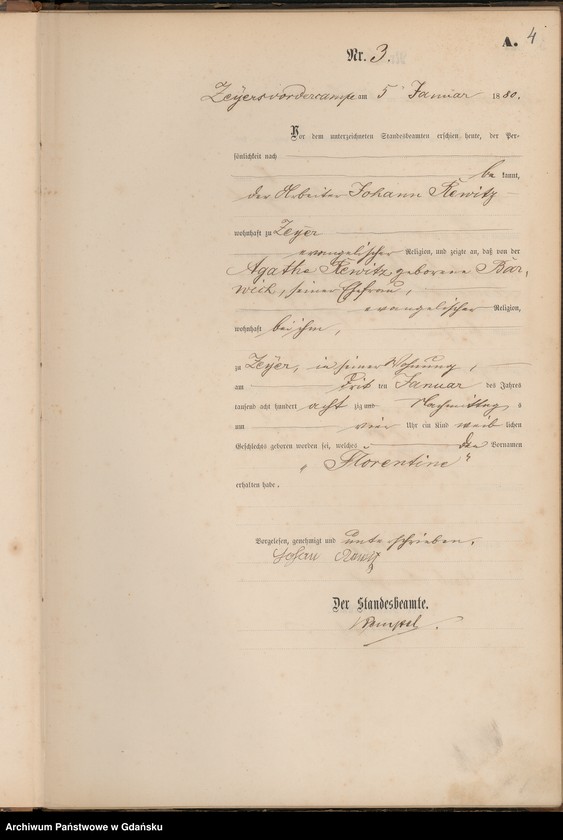 A. 4
Nr. 3.
Zeyersvordercampe am 5 Januar 1880.
Vor dem unterzeichneten Standesbeamten erschien heute, der Per-
sönlichkeit nach
be kannt,
der Arbeiter Johann Rewitz
wohnhaft zu Zeyer
evangelischer Religion, und zeigte an, daß von der
Agatha Rewitz geborene Bar-
wick, seiner Ehefrau,
evangelischer Religion,
wohnhaft bei ihm,
zu Zeyer, in seiner Wohnung,
am Drit ten Januar des Jahres
tausend acht hundert acht zig und Nachmittag s
um vier Uhr ein Kind weib lichen
Geschlechts geboren worden sei, welches den Vornamen
„Florentine“
erhalten habe.
Vorgelesen, genehmigt und unterschrieben.
Johan
Der Standesbeamte.
Archiwum Państwowe w Gdańsku